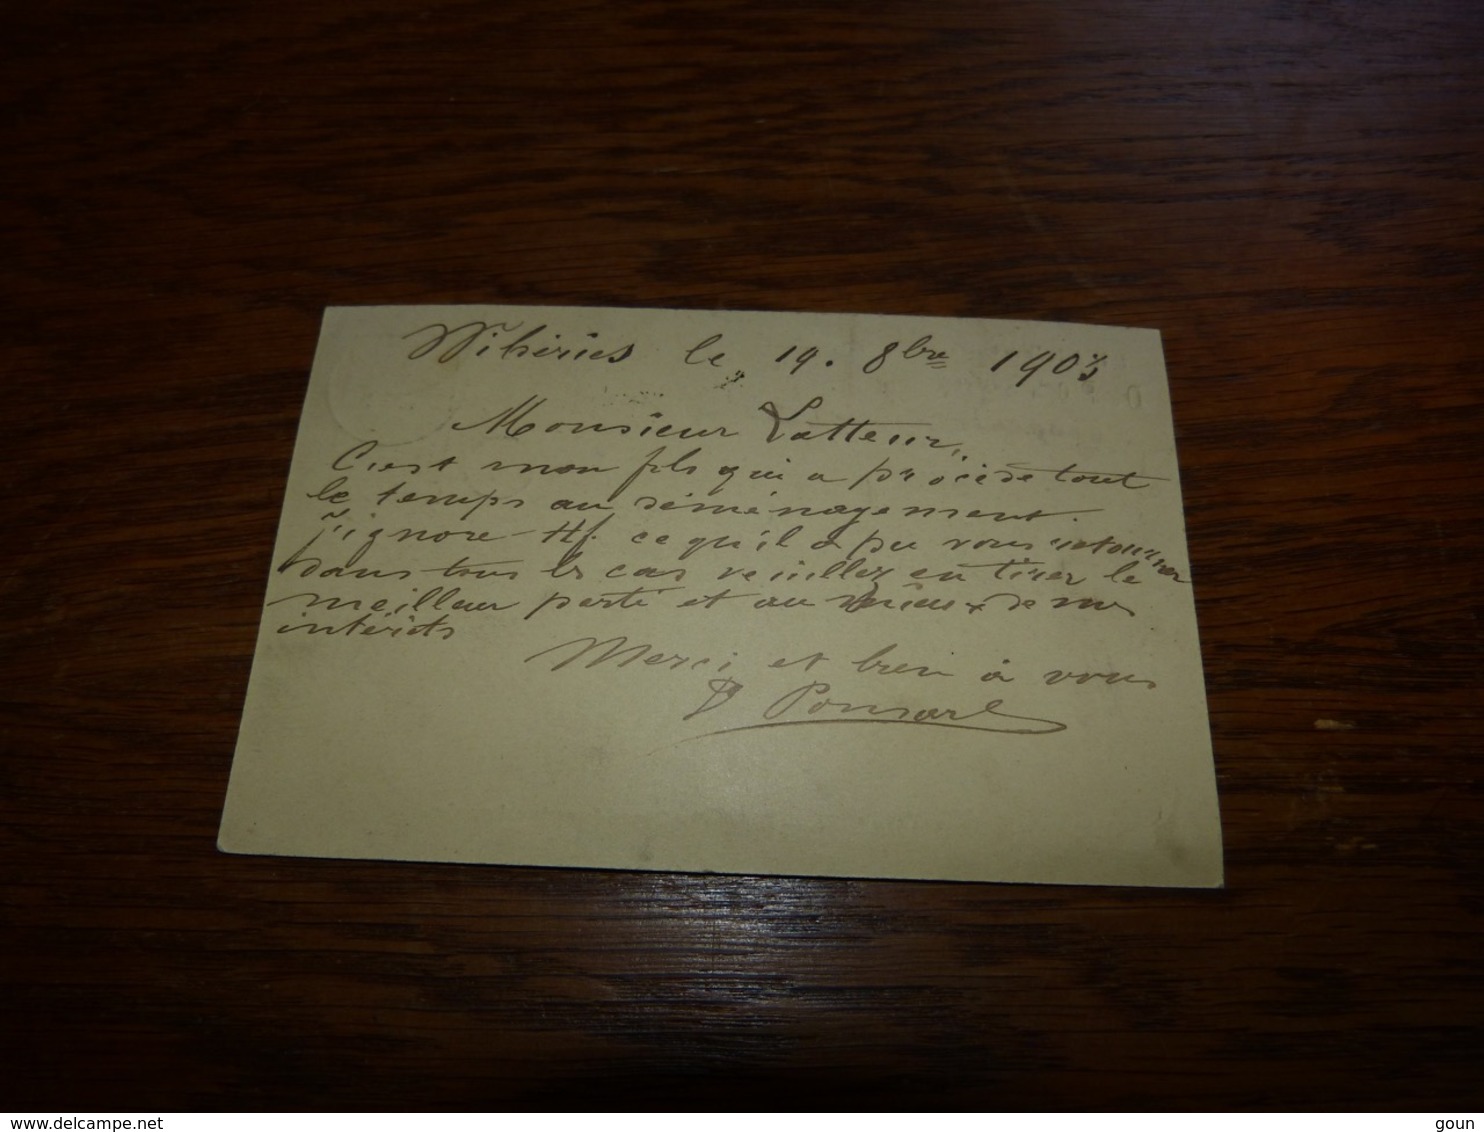 Wihéries le 19. 8bre 1903
Monsieur Latteur,
C'est mon fils qui a procédé tout
le temps au déménagement.
J'ignore ce qu'il a pu vous retourner
dans tous les cas veuillez en tirer le
meilleur parti et au mieux de nos
intérêts
Merci et bien à vous
Ponsart
delcampe.net
goun